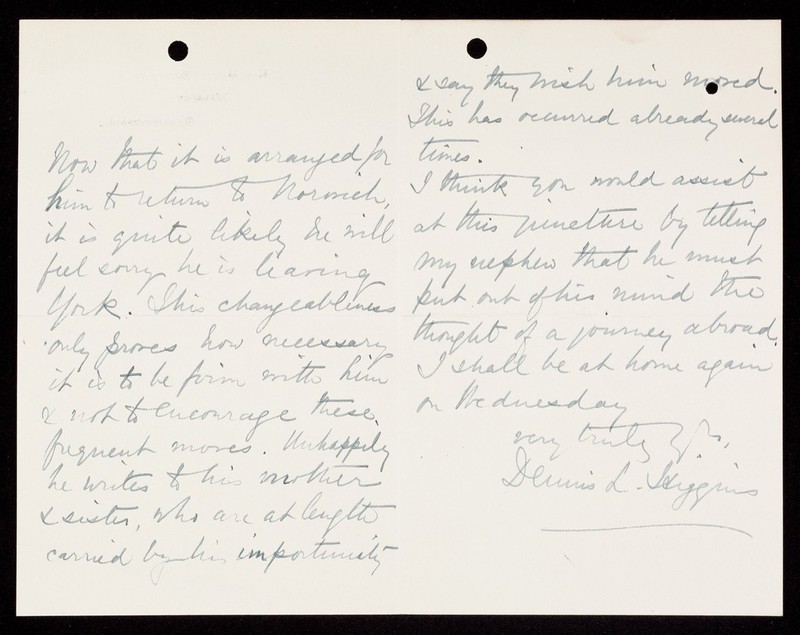 Now that it is arranged for
him to return to Norwich,
it is quite likely he will
feel sorry he is leaving
York. This changeableness
only proves how necessary
it is to be firm with him
& not to encourage these
frequent moves. Unhappily
he writes to his mother
& sister, who are at length
carried by his importunity
& say they wish him moved.
This has occurred already several
times.
I think you would assist
at this juncture by telling
my nephew that he must
put out of his mind the
thought of a journey abroad.
I shall be at home again
on Wednesday
very truly yrs,
Dennis L. Higgins